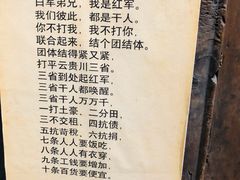 白军弟兄，我是红军。
我们彼此，都是干人。
你不打我，我不打你，
联合起来，结个团结体。
团体结得紧又紧，
打平云贵川三省。
三省到处起红军，
三省干人都唤醒。
三省干人万万千，
一打土豪、二分田，
三不交租、四抗债，
五抗苛税、六抗捐，
七条人人要饭吃，
八条人人有衣穿，
九条工钱要增加，
十条百货要便宜。